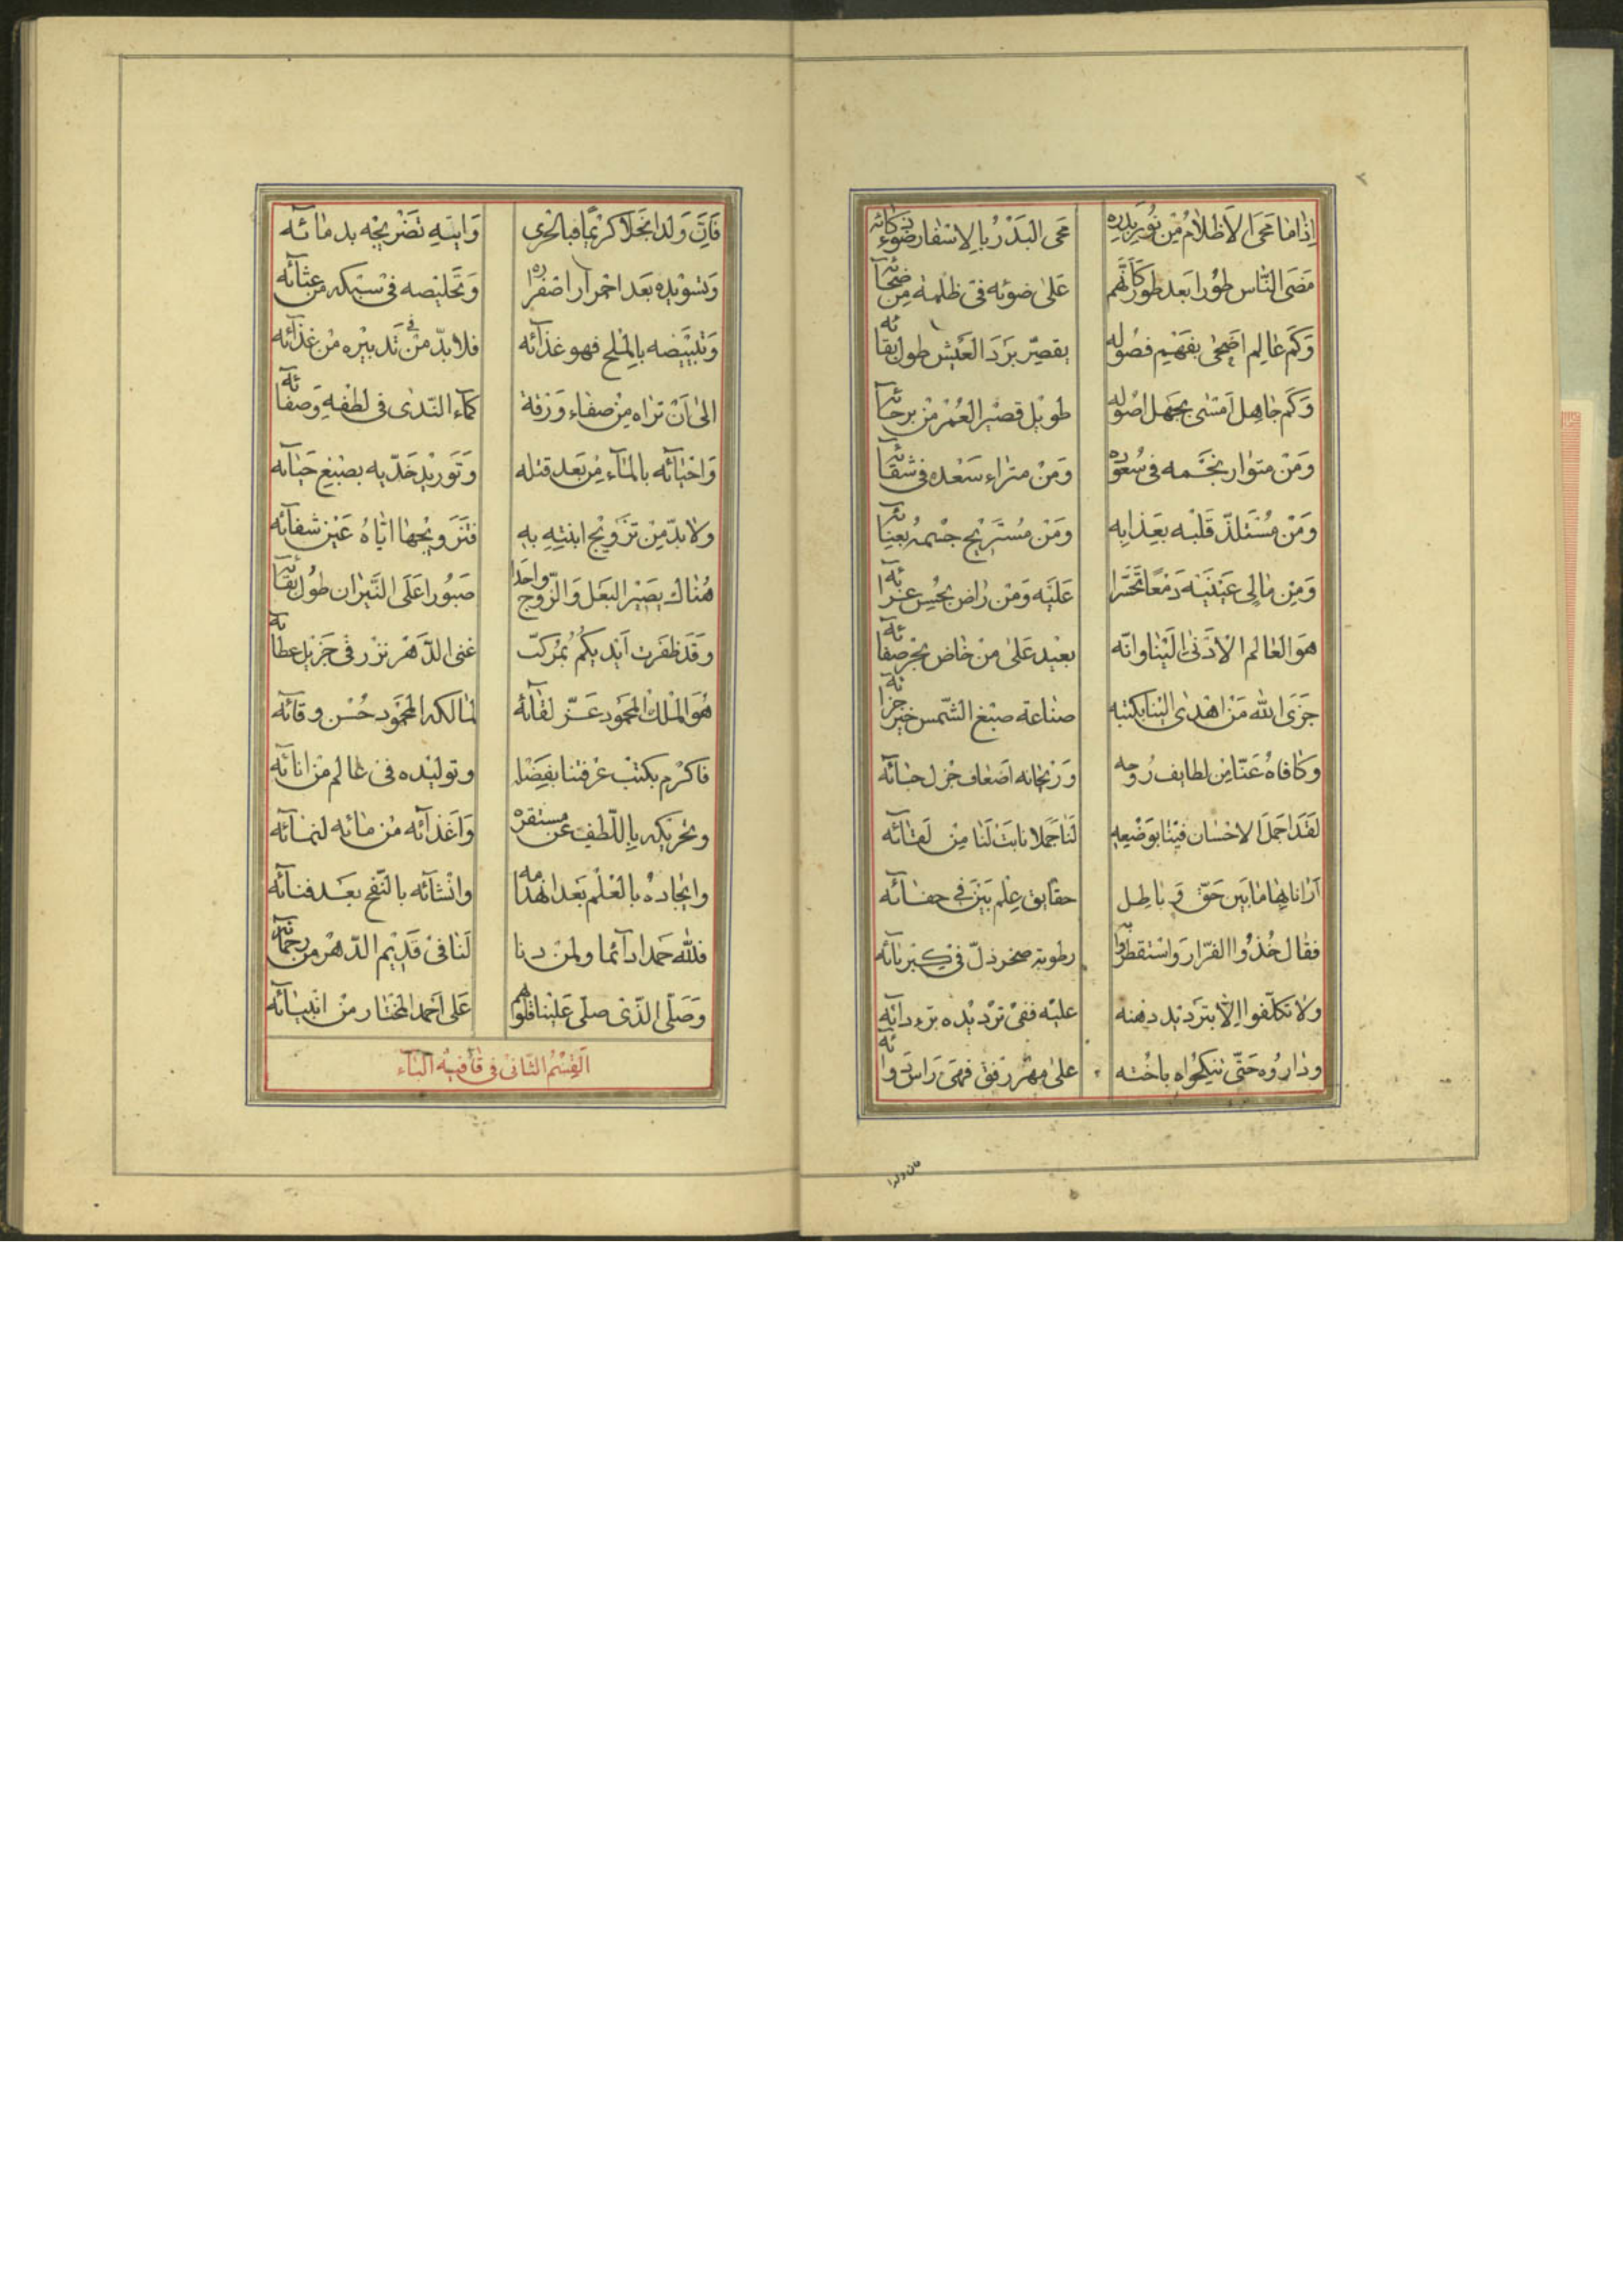 اِذٰا مٰا مَحَى الْاَظْلٰامُ مِنْ نُورِ بَدْرِهِ مَحَى الْبَدْرُ بِالاِسْفٰارِ ضَوْءَ ذُكٰائِهِ
مَضَى النّٰاس طَوْرا بَعد طور كَاَنَّهُم عَلىٰ ضوئه فى ظلمة مِن ضحٰآئه
وَكَم عٰالِم اَضْحىٰ بفَهْيم فصُوله يقصّر بَرَدَ الْعَيْش طول بقآئه
وَكَم جٰاهِل اَمْسىٰ بجَهل اصُوله طويل قصْير الْعُمْر مْن برحآئه
وَمَنْ متوٰار نجَّمه فى سُعوده وَمَنْ مترٰاء سَعْده فى شقآئه
وَمَنْ مُسْتَلذّ قَلْبه بعَذٰابِه وَمَن مُسْتَريْح جسْمه بعنآئه
وَمِن مٰالِى عَيْنَيْه دَمْعًا تحَسّرا عَلَيْه وَمَنْ رٰاض
هوَ الْعٰالم الْاَدْنىٰ اِلَيْنٰا وانّه بعْيد عَلىٰ مَنْ خٰاض بحْر صفآئه
جَزَى الله مَنْ اَهْدىٰ اليْنا بكتبه صنٰاعة صبْغ الشّمس خير جزآئه
وكٰافاهُ عَنّا مِن لطايف رُوحه وَرَيْحٰانه اضعٰاف جْزل حبٰآئه
لقَدَ اجمَل الاحْسٰان فيْنٰا بوَضْعِه لَنٰا جُمَلا نابَتْ لَنٰا مِن لقٰآئه
اَرٰانا بهٰا مٰا بَين حَقّ وَبٰاطِل حقٰايق عِلم بَيّن فى خفٰآئه
فقٰال خُذْوا الفرّار وَاسْتقطروا به رطوبة صخر ذلّ فى كبْريٰآئه
ولٰا تكلّفوا اِلّا بتَرْديْد دهنه عليْه ففى ترْديْده برء دآئه
ودٰارُوه حَتّى تنكِحُواه باخْته علىٰ مهْر رفق فهْىَ رَاس دوآئه
فَاِنّ وَلدا نَجْلاً كريْمًا فبالْحرى وَابنَهِ تضْريْجه بدمٰائه
وَتسْويده بَعد احْمرٰار اصْفره وَتَخْليْصه فى سَبْكه من غثآئه
وَتبْيَيْضه بالمْلح فهو غذآئه فلا بدّ منْ فى تَدبيْره من غذآئه
الىٰ اَنْ ترٰاه مِنْ صفٰاء وَرَقة كمآء النّدى فى لطفهِ وَصفآئه
وَاحْيٰآئه بالمٰآء مِن بَعد قتله وَتَوْريْد خَدّيه بصْبغ حَيٰآئه
ولٰا بدّ مِنْ تزَوْيْج ابنتِهِ به فتَزويْجهٰا ايّاهُ عَيْن شفآئه
هُنٰاك يصَيْر البَعْل وَالزّوج وٰاحَدا صَبُورا عَلَى النَّيرٰان طول بقآئه
وقَد ظفَرت اَيْديكُم بُمركّب غنى الدّهْر نزْر فى جَزيْل عطآئه
هُوَ الْمَلك المحْمود عَزّ لقآئه لمٰالكه المحْمود حُسْن وقآئه
فاكرْم بكتْب عرفتنا بفَضْله وتوليْده فى عٰالم من انآئه
وتحْريْكه بالّلطف عن مستقره وَاغذآئه مْن مٰائه لنمٰآئه
وايْجٰادهُ بالْعلْم بَعد انهدامه وانْشآئه بالنّفخ بعَد فنآئه
فلّله حَمدا دآئما ولمن دنا لَنٰا فى قَديْم الدّهْر من رحمآئه
وَصَلّى الذّى صلّى عَليْنٰا قلوهم عَلى اَحمد المختٰار منْ انْبيٰآئه
اَلقِسْمُ الثّانى فى قٰافيَة البٰآء
فان ولدا